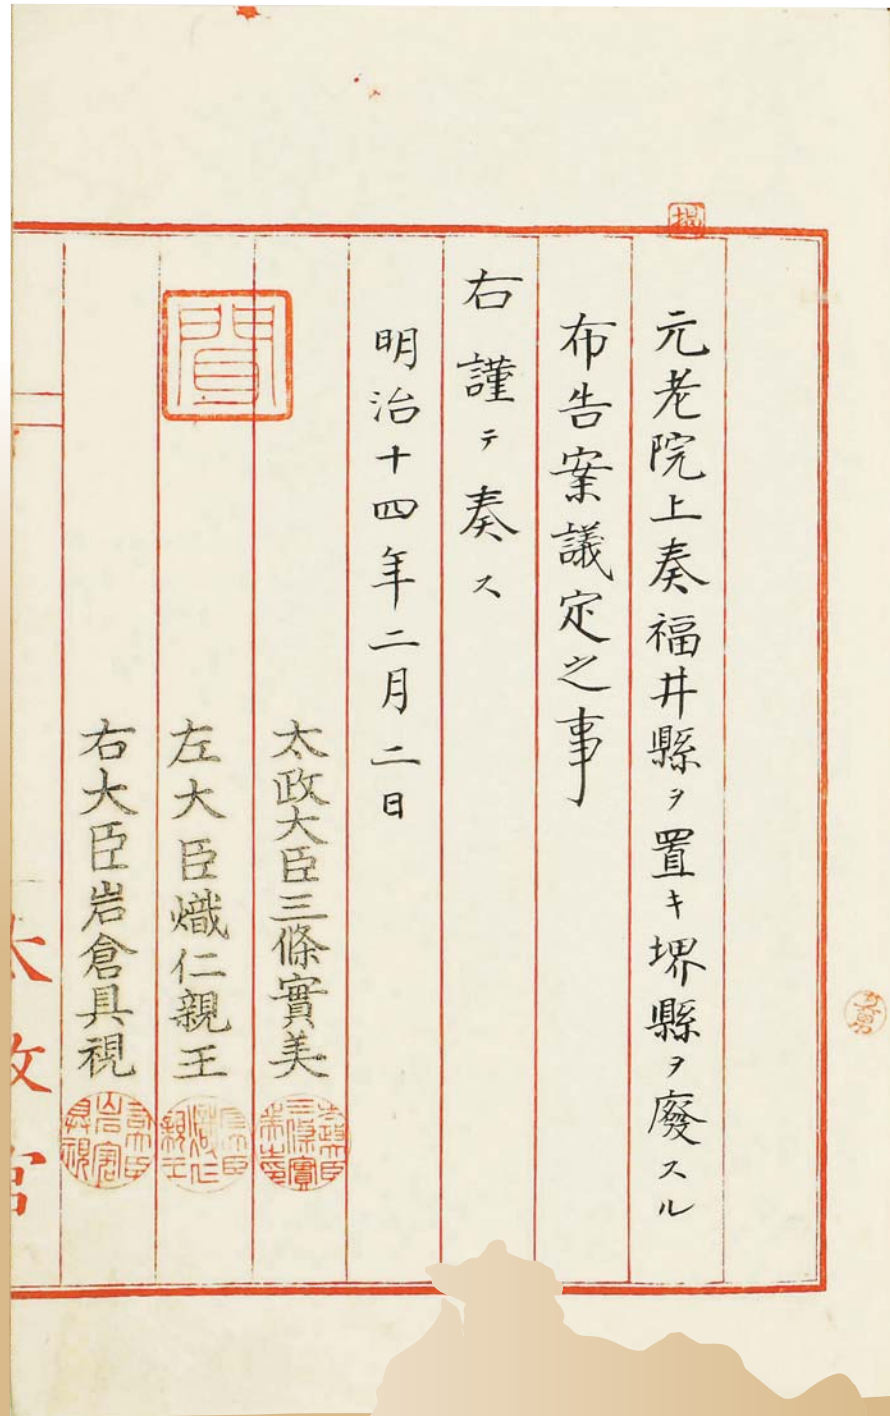 元老院上奏福井縣ヲ置キ堺縣ヲ廢スル
布告案議定之事
右謹テ奏ス
明治十四年二月二日
聞
太政大臣三條實美
左大臣熾仁親王
右大臣岩倉具視
太政官